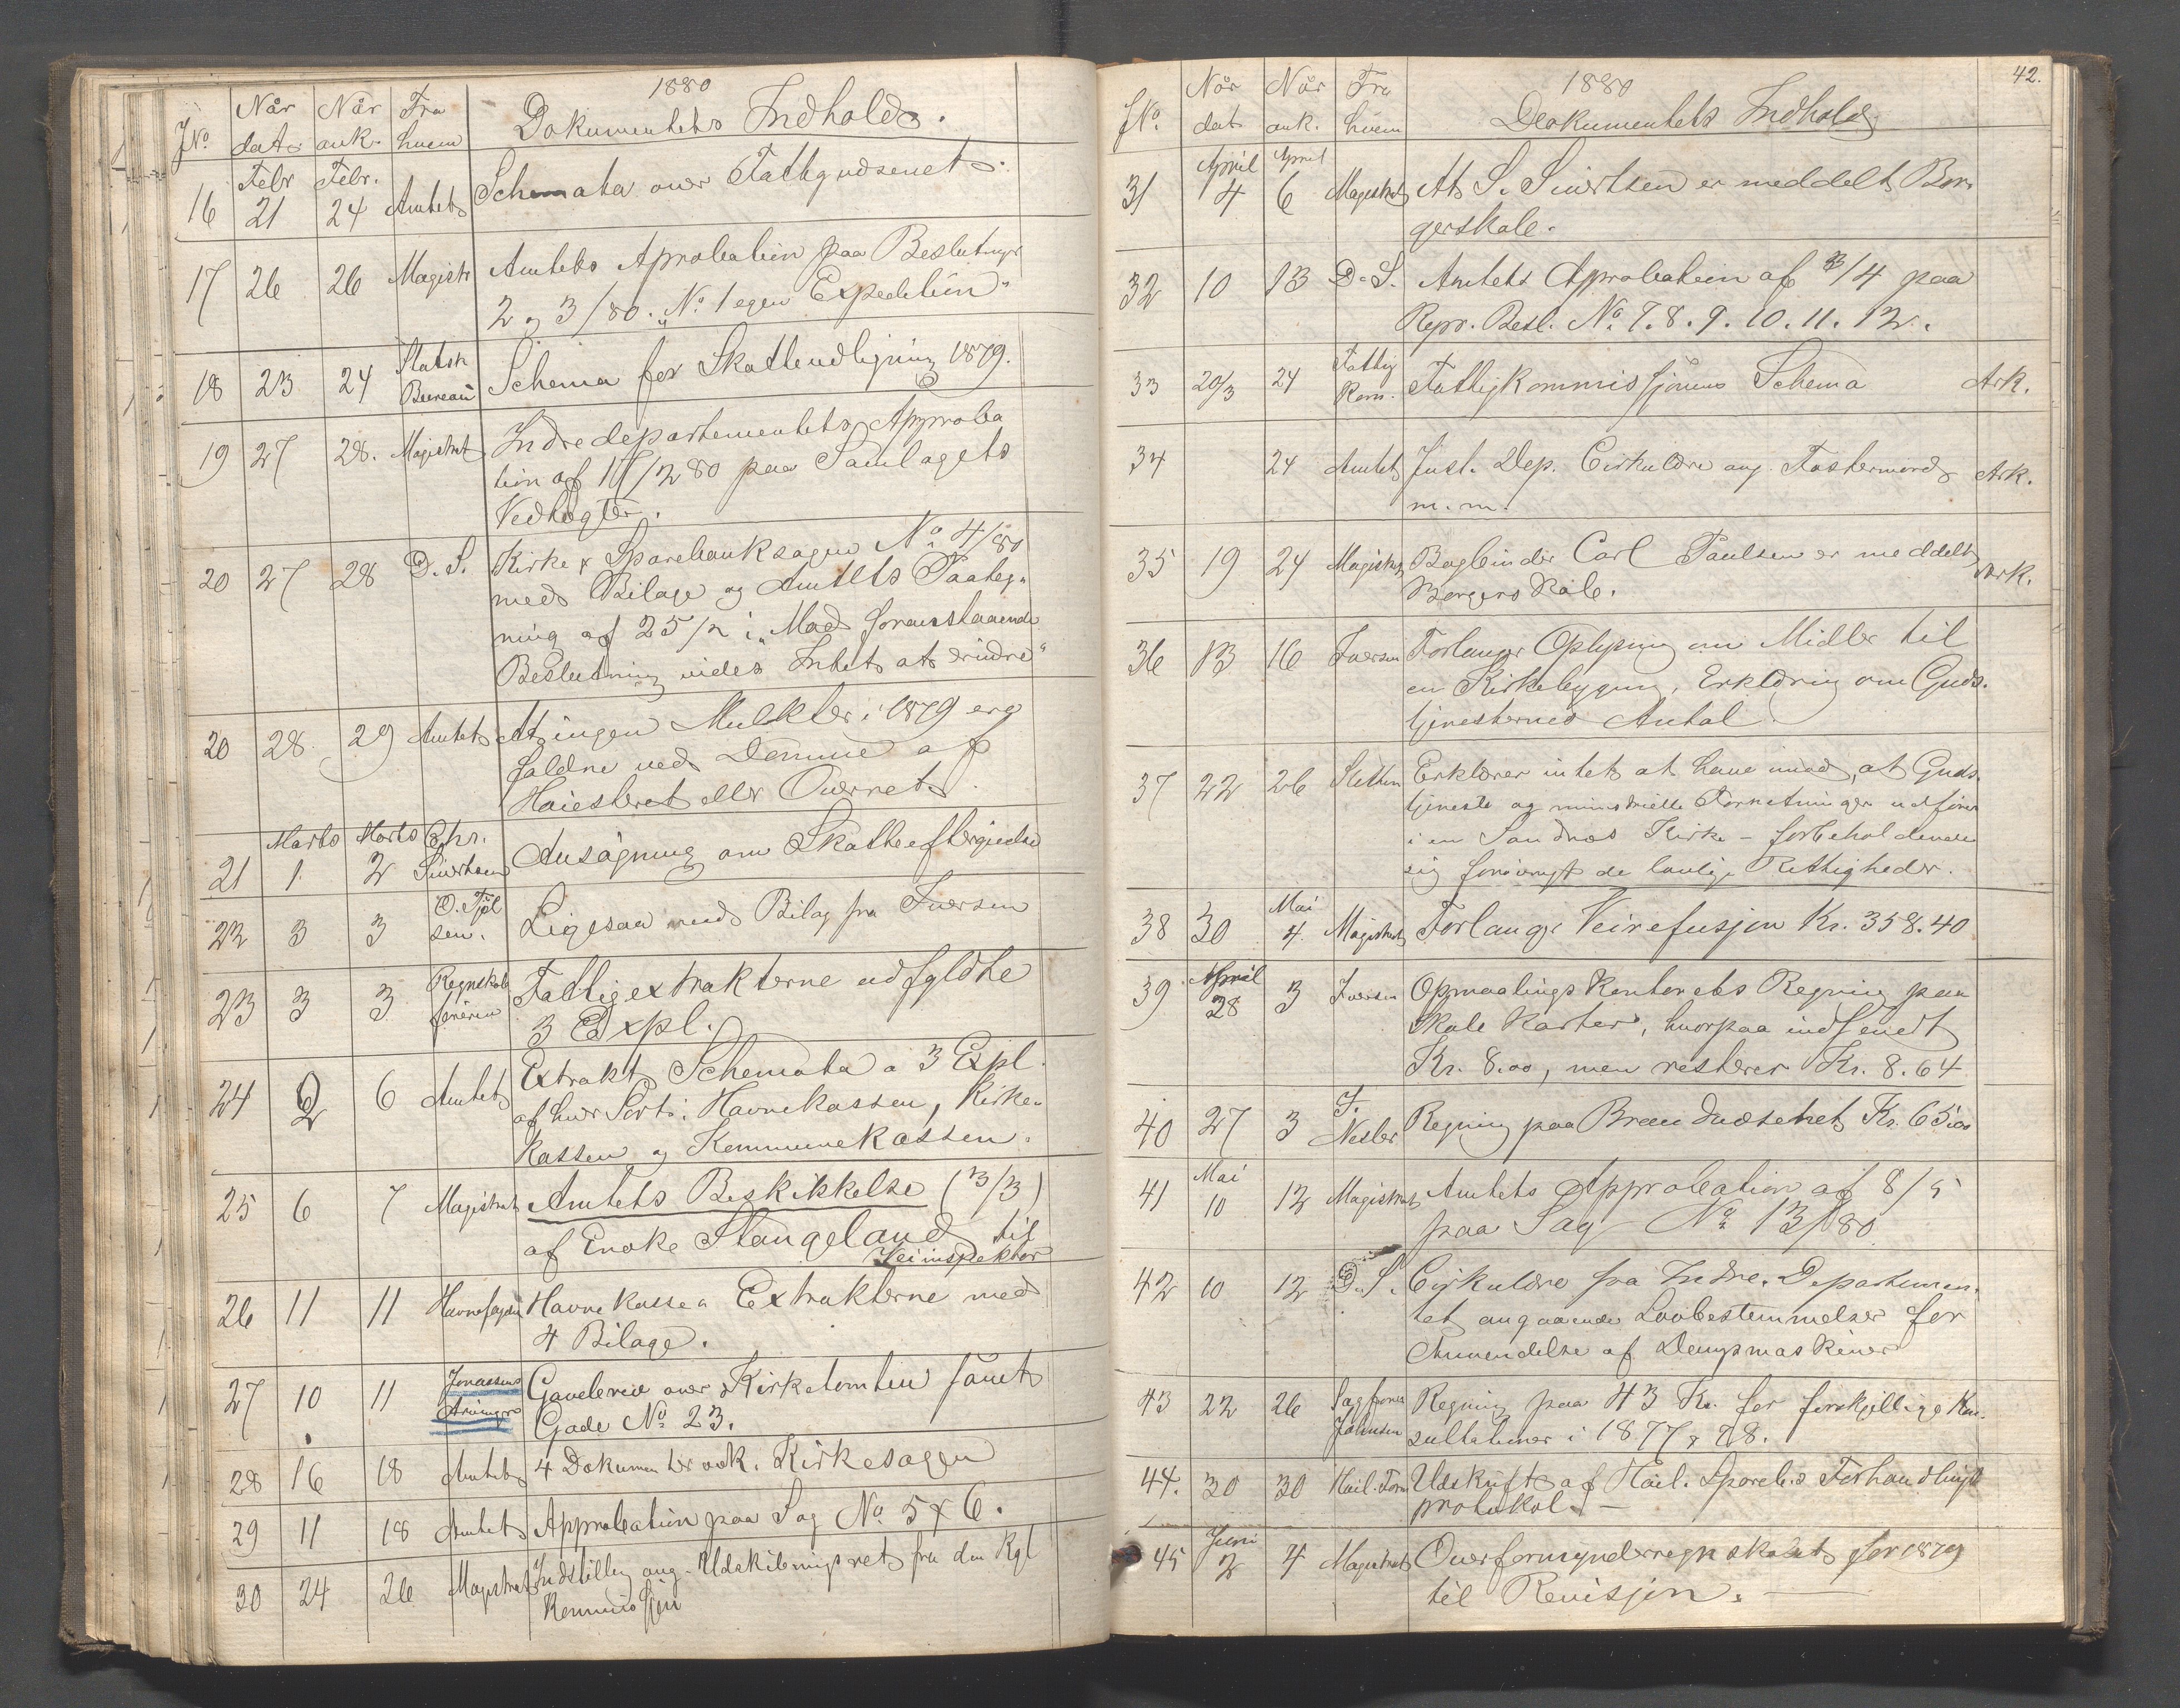 1880
JNo. Når dat. Når ank. Fra hvem Dokumentets Indhold.
Febr Febr.
16 21 24 Amtet Schemata over Fattigvæsenet
17 26 26 Magistr Amtets Aprobation paa Beslutninger
2 og 3/80. No 1 egen Expedition
18 23 24 Statsk Bureau Schema for Skatteudligning 1879.
19 27 28. Magistrat Indredepartementets Approba
tion af 17/2 80 paa Samlagets
Vedtægter.
20 27 28 D. S. Kirke & Sparebanksagen No 4/80
med Bilage og Amtets Paateg-
ning af 25/2 i "Mod foranstaaende
Beslutning vides Intet at erindre"
20 28. 29 Amtet At ingen Mulkter i 1879 ere
faldne ved Domme af
Høiesteret eller Overret.
Marts Marts Chr.
21 1. 2 Sivertsen Ansøgning om Skatteeftergivelse
22 3 3 O. Tjøl
sen. Ligesaa med Bilag fra Iversen
23 3 3 Regnskabs
føreren Fattigextrakterne udfyldte
3 Expl.
24 2 6 Amtet Extrakt Schemata a 3 Expl.
af hver Sort: Havnekassen, Kirke-
kassen og Kommunekassen.
25 6 7 Magistrat Amtets Beskikkelse (3/3)
af Enoke Stangeland til
Veiinspektør
26 11 11 Havnefogden Havnekasse Extrakterne med
4 Bilage.
27 10 11 Jonassens
Gade No 23.
28 16 18 Amtet 4 Dokumenter vedk. Kirkesagen
29 11 18 Amtet Approbation paa Sag No 5 & 6.
30 24 26 Magistrat Indstilling ang. Udskibningsret fra den Kgl
Kommissjon
42.
1880
JNo. Når dat. Når ank. Fra hvem Dokumentets Indhold
April April
31 4 6 Magistrat At S. Sivertsen er meddelt Bor-
gerskab.
32 10 13 D. S. Amtets Approbation af 3/4 paa
Repr. Besl. No 7. 8. 9. 10. 11. 12.
33 20/3 24 Fattig
Kom. Fattigkommissjonens Schema Ark.
34 24 Amtet Just. Dep. Cirkulære ang. Fostermord Ark.
m. m.
35 19 24 Magistrat Bogbinder Carl Paulsen er meddelt Ark.
Borgerskab.
36 13 16 Iversen Forlanger Oplysning om Midler til
en Kirkebygning, Erklæring om Guds-
tjenesternes Antal.
37 22 26 Erklærer intet at have imod, at Guds-
tjeneste og ministrielle Forretninger udføres
i en Sandnæs Kirke – forbeholdende
sig forøvrigt de lovlige Rettigheder.
Mai
38 30 4. Magistrat Forlanger Veirefusjon Kr. 358.40
39 April
28 3 Iversen Opmaalingskontorets Regning paa
Skole Karter, hvorpaa indsendt
Kr. 8.00, men resterer Kr. 8.64
40 27 3 F.
Nesler Regning paa Brandvæsenet Kr. 65.00
Mai
41 10 12 Magistrat Amtets Approbation af 8/5
paa Sag No 13/80
42 10 12 D. S. Cirkulære fra Indre. Departemen-
tet angaaende Lovbestemmelser for
Anvendelse af Dampmaskiner
43 22 26 Sagfører
Johnsen Regning paa 43 Kr. for forskjellige Kon-
sultationer i 1877 & 78.
44. 30 30 Udskrift af Høil. Spareb.s Forhandlings
protokol. –
Juni
45 2 4 Magistrat Overformynderregnskabet for 1879
til Revisjon. —